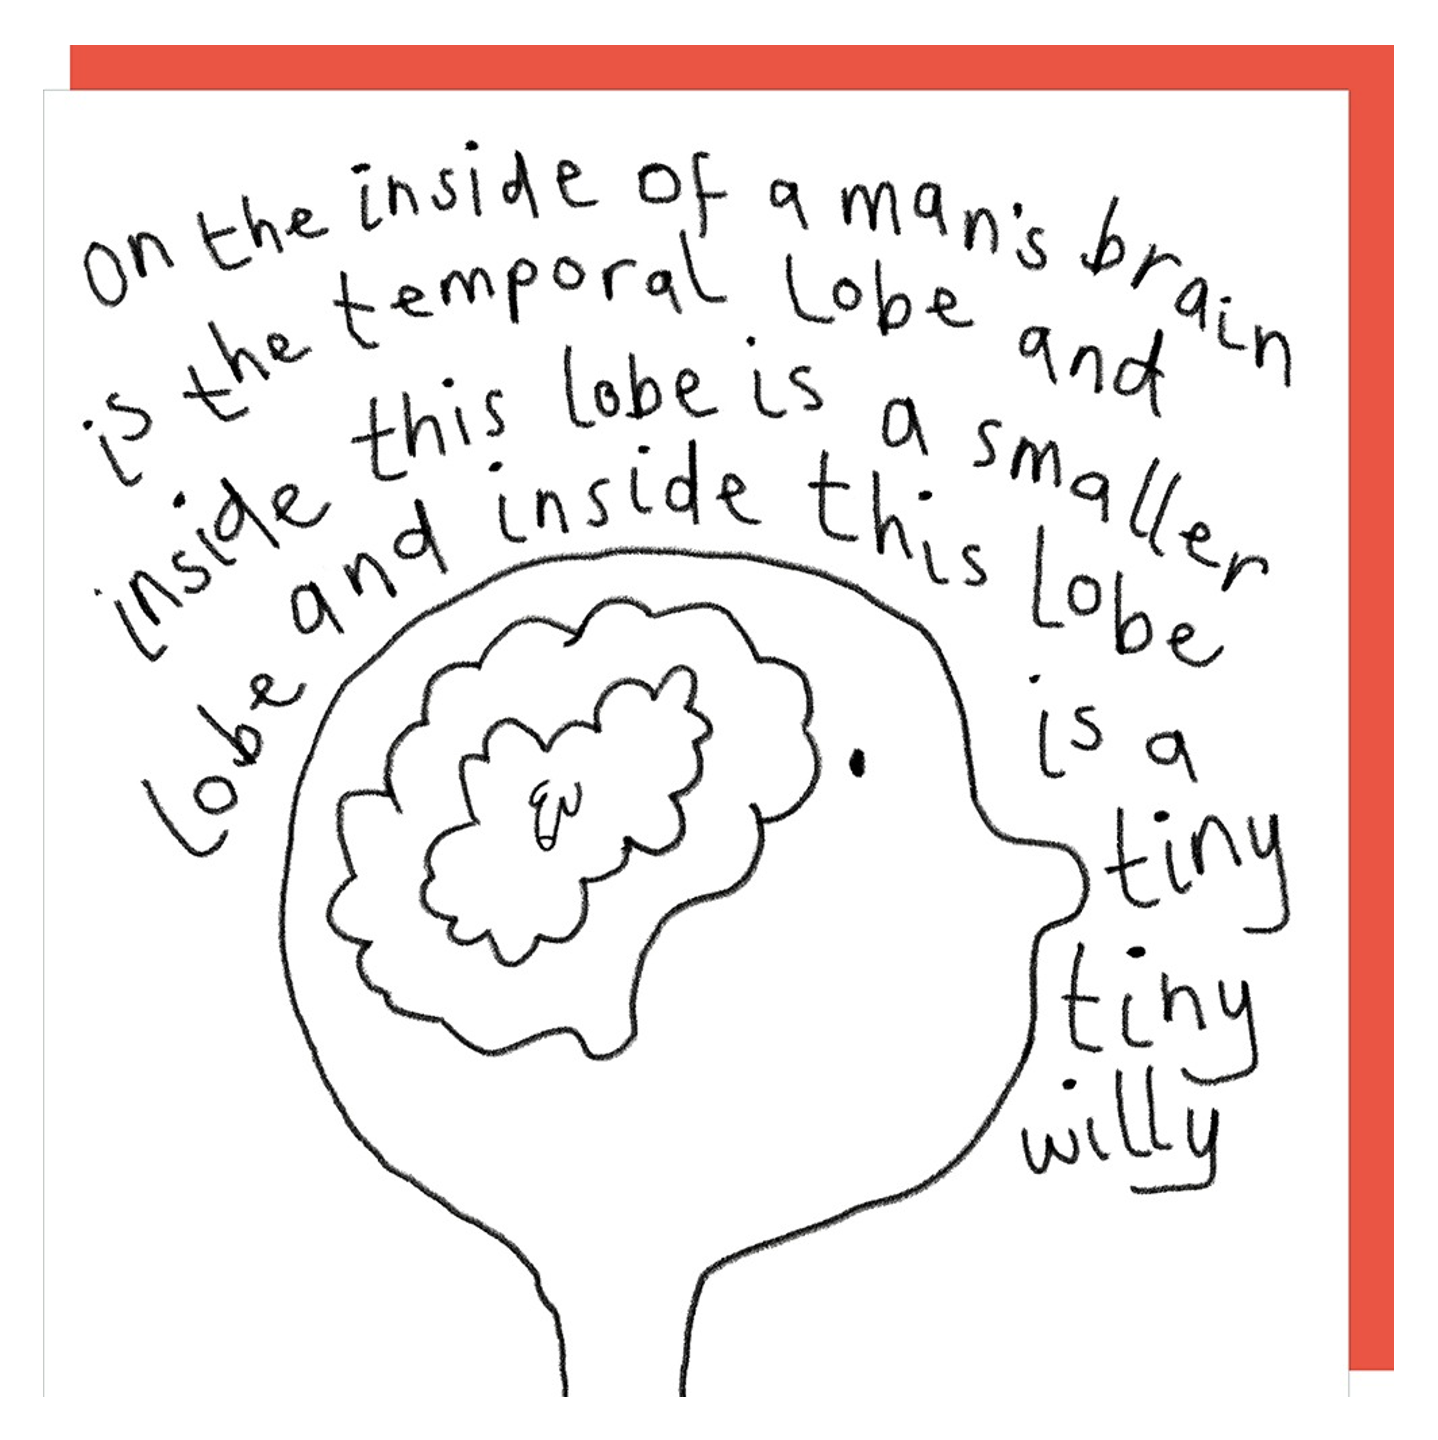 on the inside of a man's brain
is the temporal lobe and
inside this lobe is a smaller
lobe and inside this lobe
is a
tiny
tiny
willy